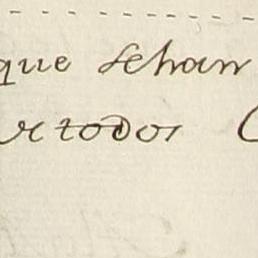 que sehan
todos